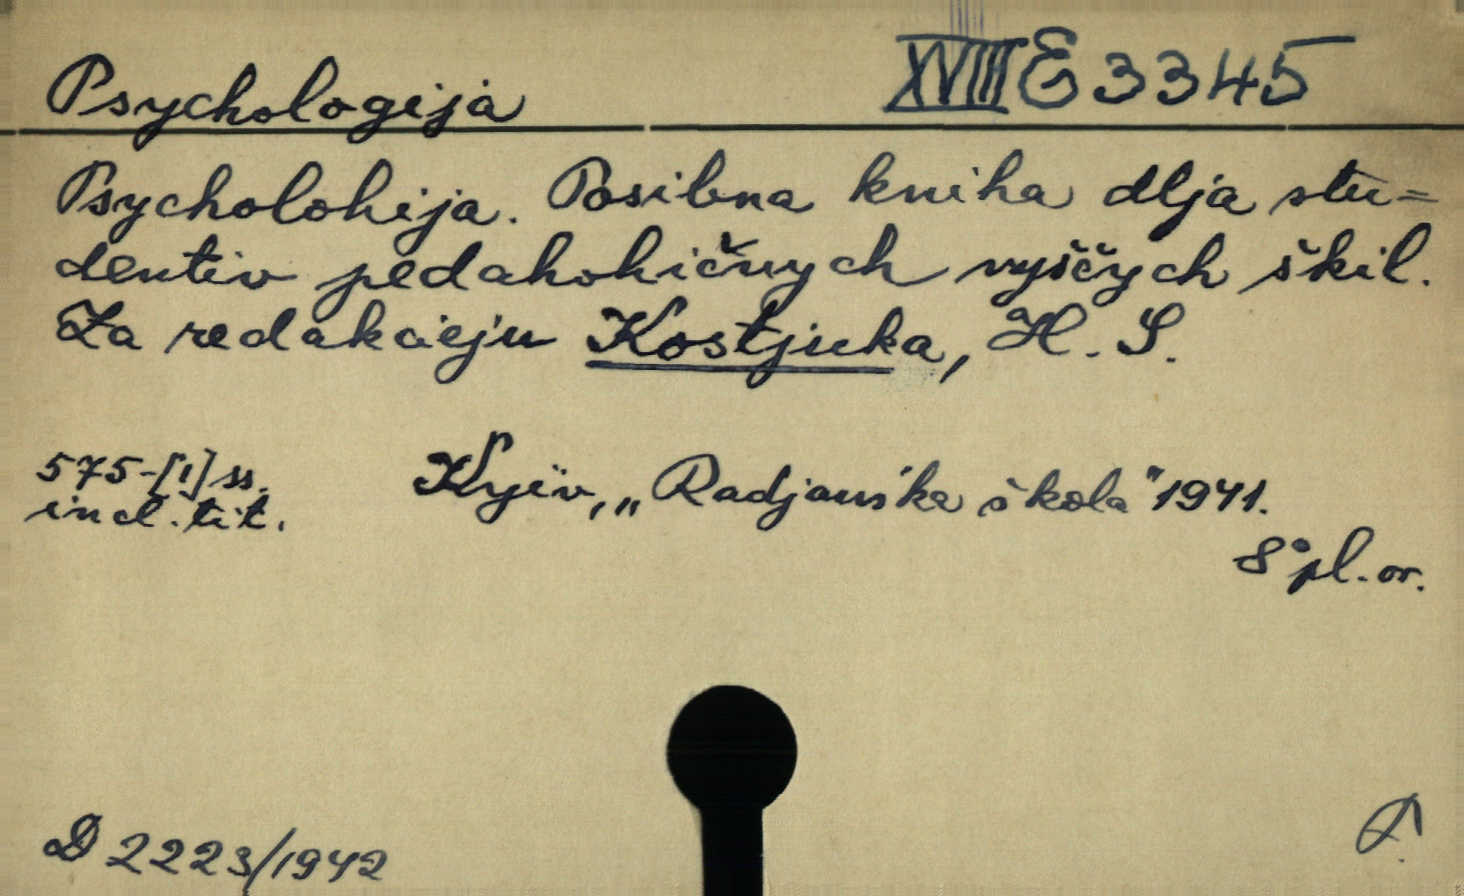 Psychologija XVIII E 3345
Psycholohija. Posibna kniha dlja stu=
dentiv pedahohičnych vyščych škil.
Za redakcieju Kostjuka, H. S.
575-[1] ss.
incl. tit.
Kyïv, „Radjanśka škola" 1941.
8° pl. or.
D 2223/1942